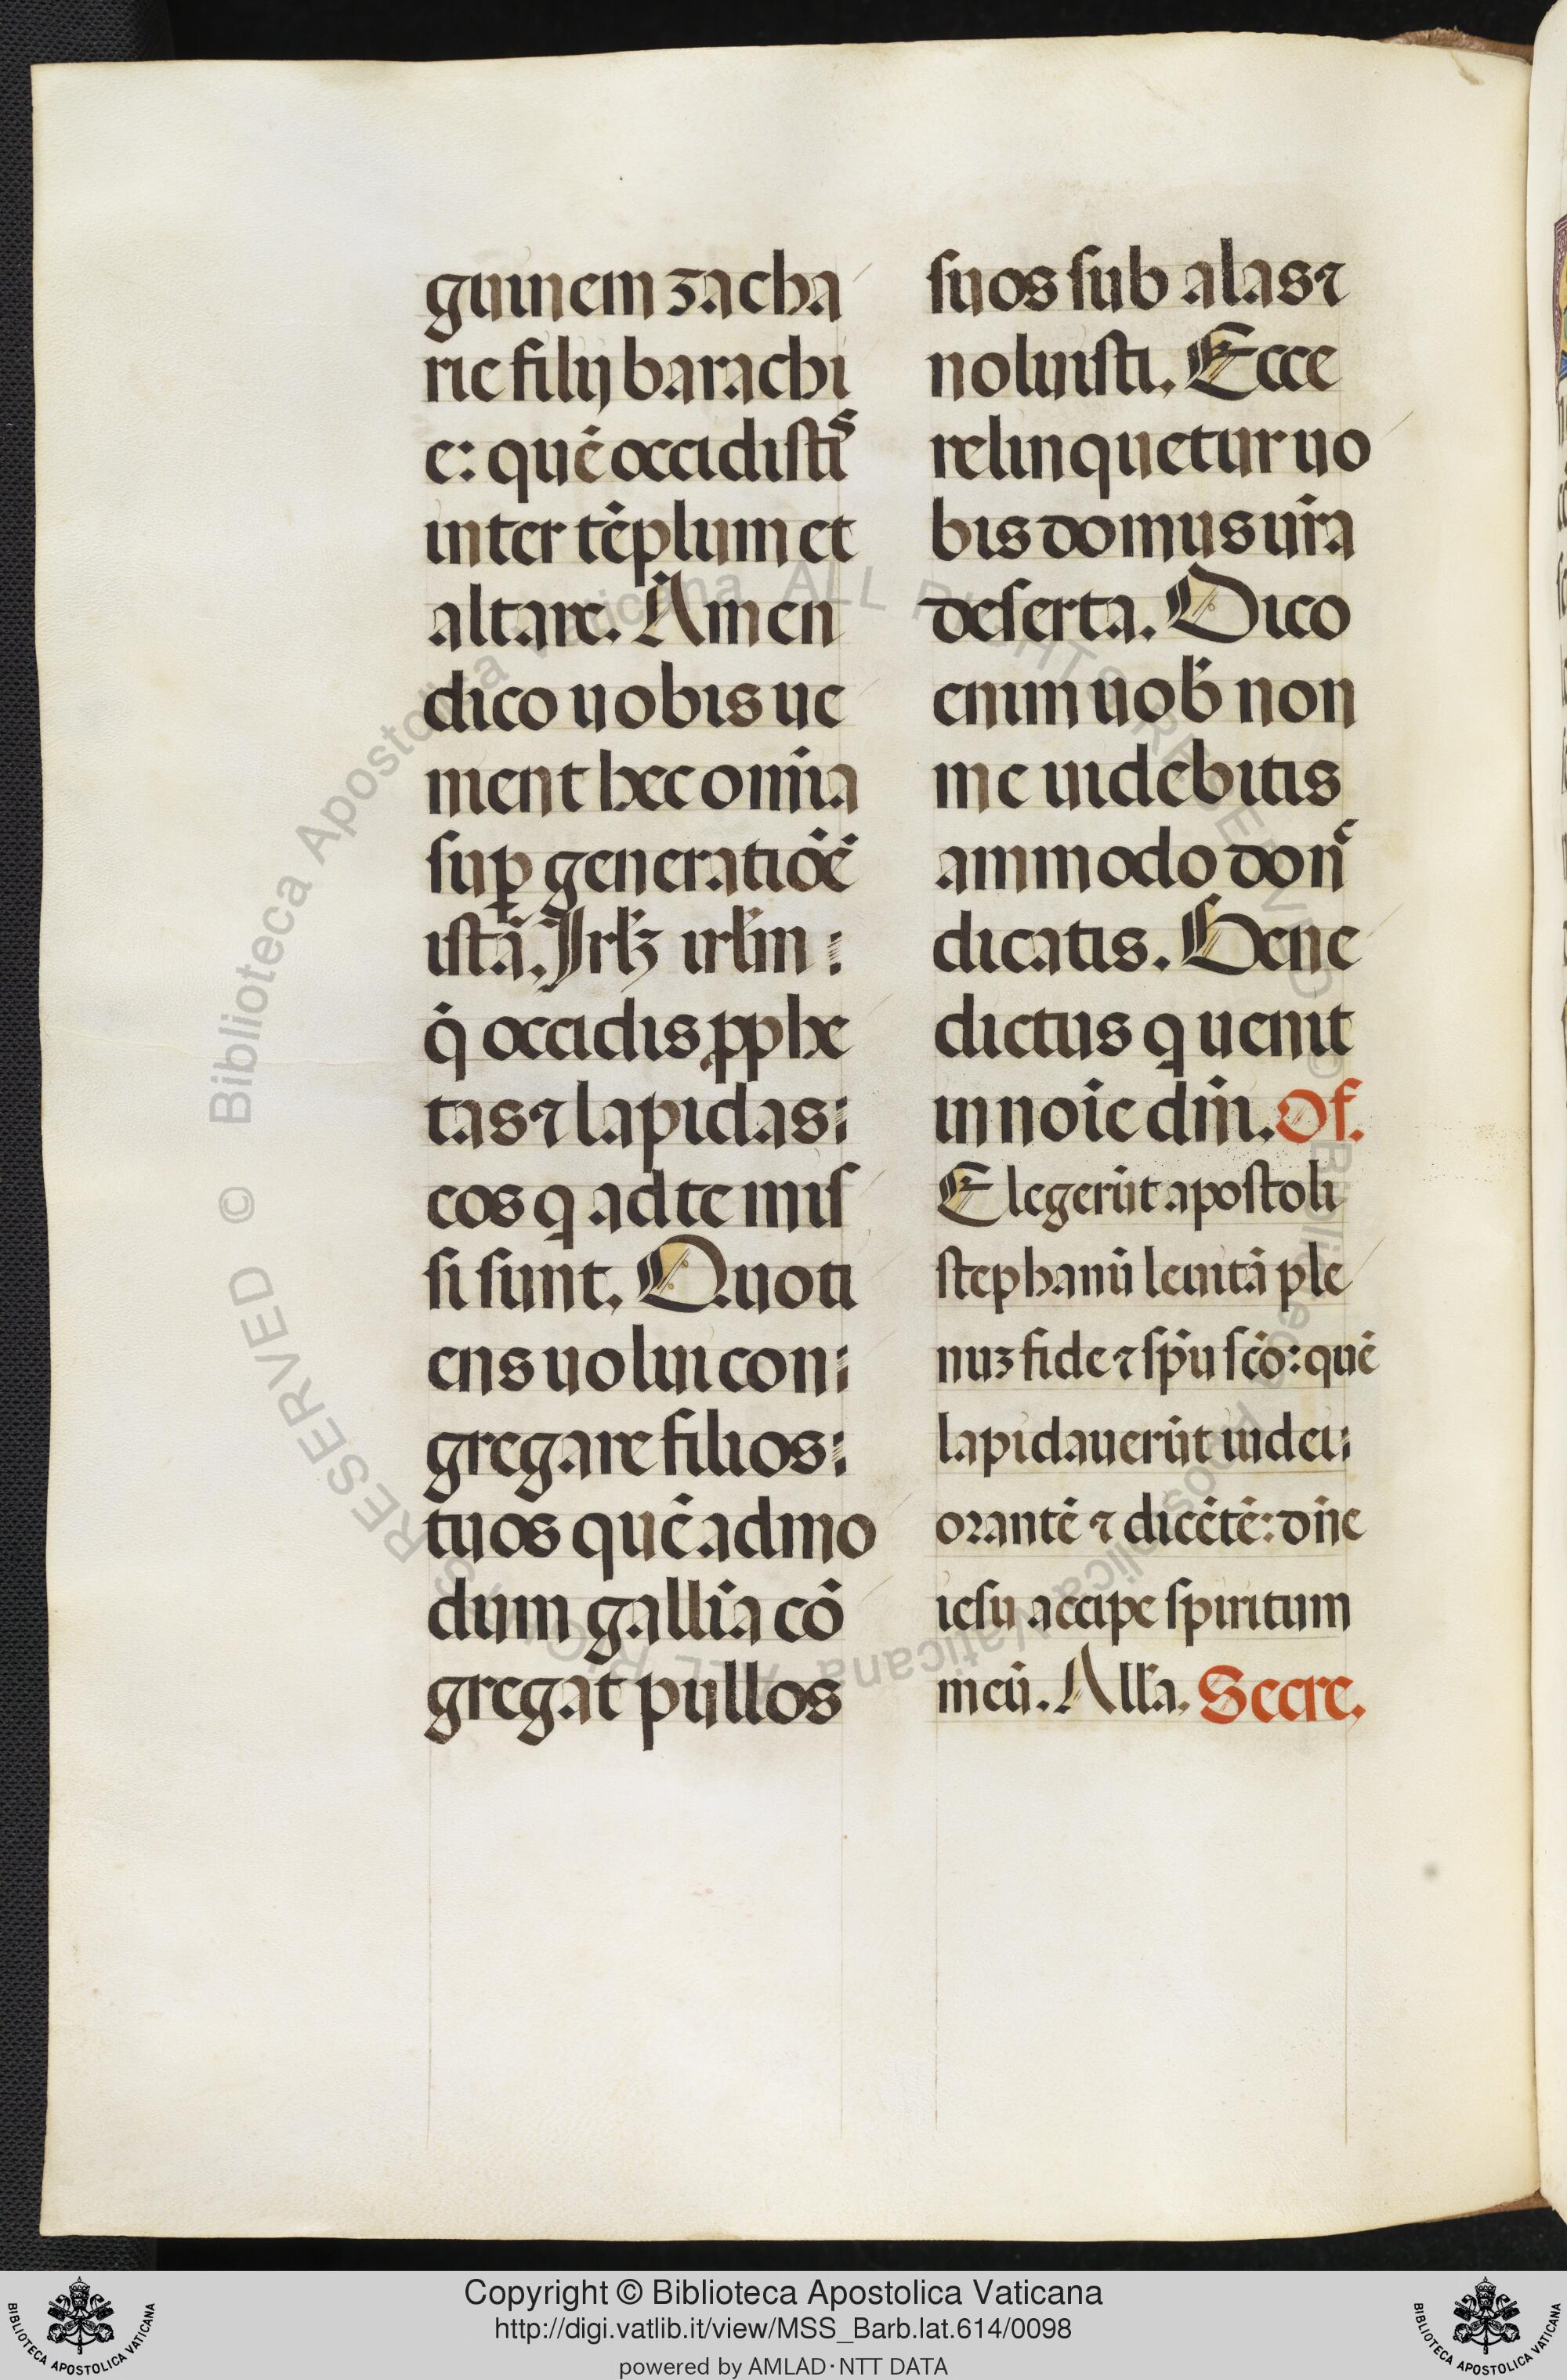 guinem zacha
rie filij barachi
e: quē occidistis
inter tēplum et
altare. Amen
dico uobis ue
nient hec om̄ia
suꝑ generatiōē
istā. Jrl̄ꝫ irl̄m
q̄ occidis ꝓphe
tas ⁊ lapidas
eos q ad te mis
si sunt. Quoti
ens uolui con
gregare filios
tuos quēadmo
dum gallīa cō
gregat pullos
suos sub alas ⁊
noluisti. Ecce
relinquetur uo
bis domus ur̄a
deserta. Dico
enim uob̄ non
me uidebitis
ammodo donc̄
dicatis. Bene
dictus q uenit
in noīe dn̄i. Of.
Elegerūt apostoli
stephanū leuitā ple
nuꝫ fide ⁊ sp̄u sc̄o: quē
lapidauerūt iudei
orantē ⁊ dicētē: dn̄e
iesu accipe spiritum
meū. All̄a. Secre.
Copyright © Biblioteca Apostolica Vaticana
http://digi.vatlib.it/view/MSS_Barb.lat.614/0098
powered by AMLAD·NTT DATA